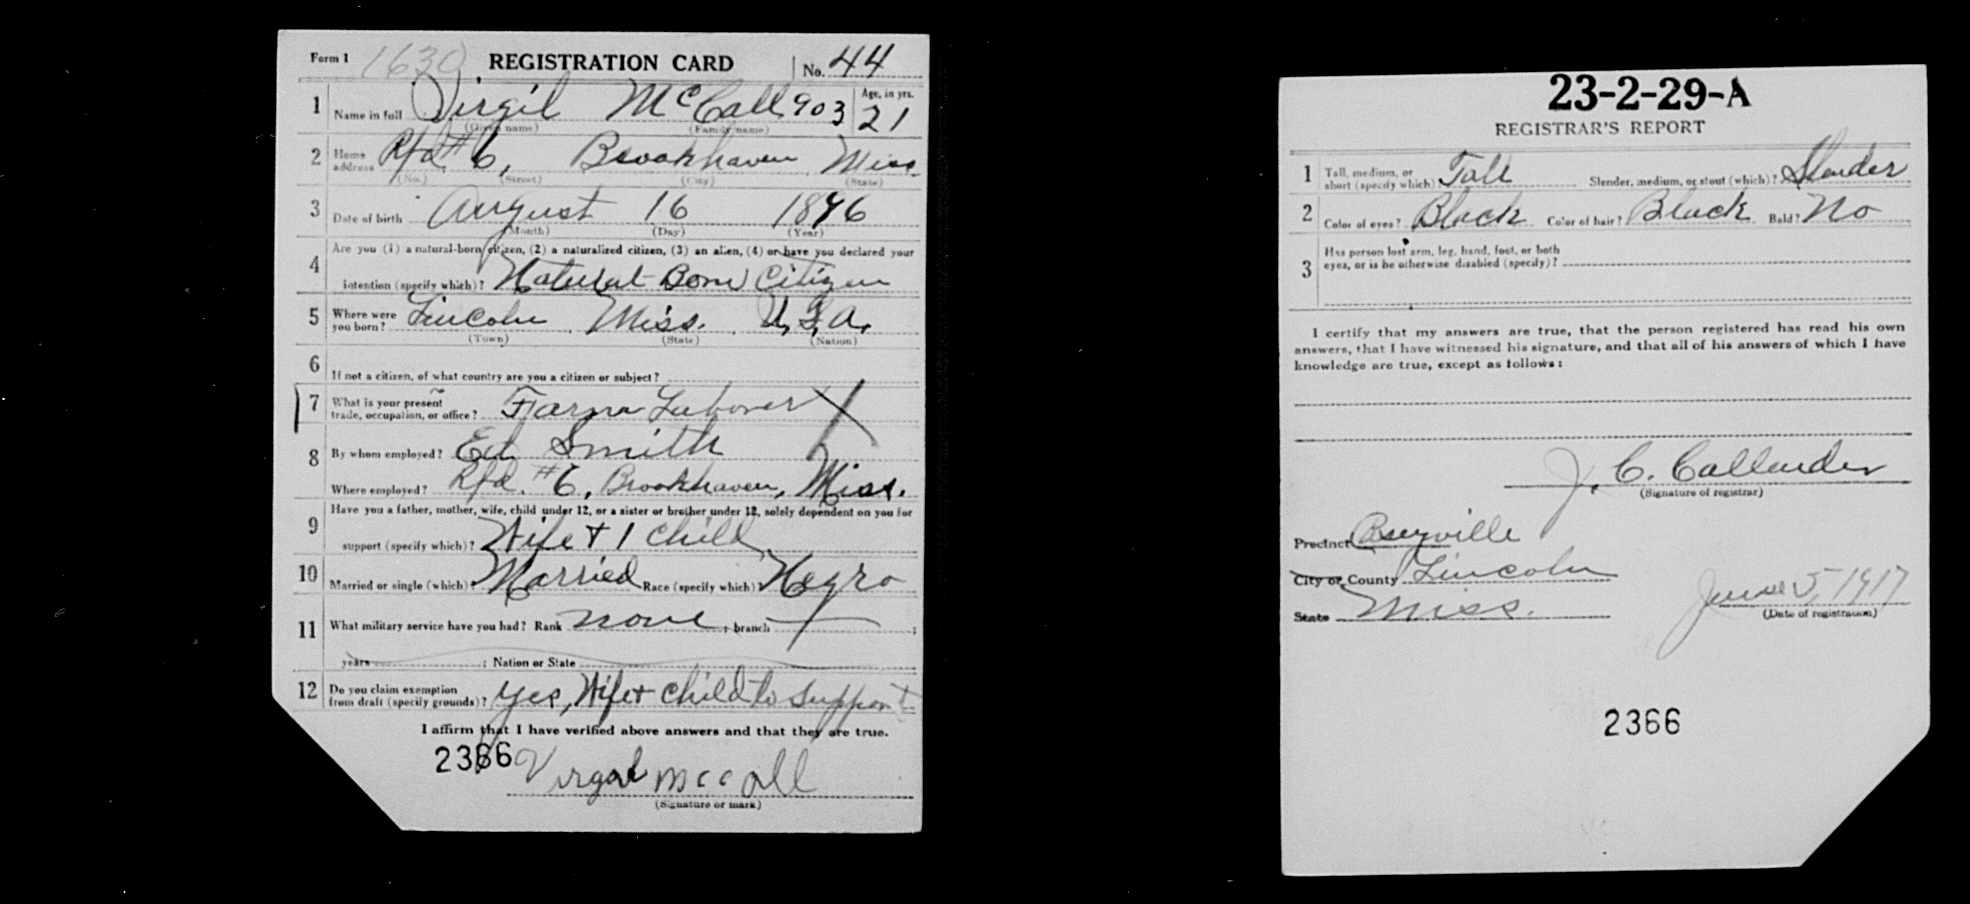 Form 1 1630 REGISTRATION CARD No. 44
1 Name in full Virgil McCall 903 Age, in yrs. 21
(Given name) (Family name)
2 Home address Rfd #6, Brookhaven Miss.
(No.) (Street) (City) (State)
3 Date of birth August 16 1896
(Month) (Day) (Year)
4 Are you (1) a natural-born citizen, (2) a naturalized citizen, (3) an alien, (4) or have you declared your
intention (specify which)? Natural Born Citizen
5 Where were you born? Lincoln Miss. U.S.A.
(Town) (State) (Nation)
6 If not a citizen, of what country are you a citizen or subject?
7 What is your present trade, occupation, or office? Farm Laborer
8 By whom employed? Ed Smith
Where employed? Rfd. #6, Brookhaven, Miss.
9 Have you a father, mother, wife, child under 12, or a sister or brother under 12, solely dependent on you for
support (specify which)? Wife + 1 child
10 Married or single (which)? Married Race (specify which)? Negro
11 What military service have you had? Rank none ; branch ;
years ; Nation or State
12 Do you claim exemption from draft (specify grounds)? Yes, Wife + child to support
I affirm that I have verified above answers and that they are true.
2366 Virgal McCall
(Signature or mark)
23-2-29-A
REGISTRAR'S REPORT
1 Tall, medium, or short (specify which)? Tall Slender, medium, or stout (which)? Slender
2 Color of eyes? Black Color of hair? Black Bald? No
3 Has person lost arm, leg, hand, foot, or both
eyes, or is he otherwise disabled (specify)?
I certify that my answers are true, that the person registered has read his own
answers, that I have witnessed his signature, and that all of his answers of which I have
knowledge are true, except as follows:
J. C. Callender
(Signature of registrar)
Precinct Caseyville
City or County Lincoln
State Miss. June 5, 1917
(Date of registration)
2366